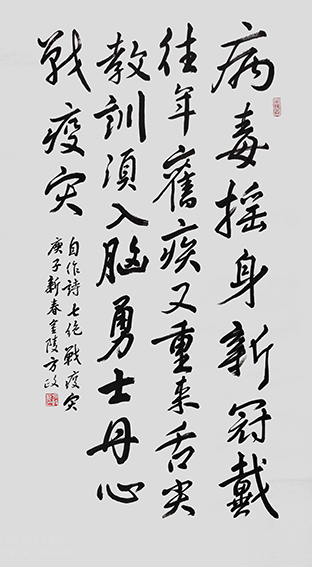 病毒摇身新冠戴
往年舊疾又重来舌尖
教訓須入脑勇士丹心
戰疫灾
自作詩七绝戰疫灾
庚子新春金陵方政